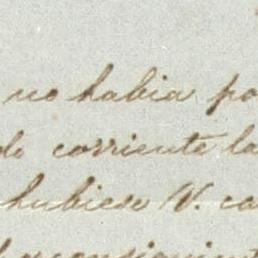 no habia po
do corriente la
hubiese V. ca